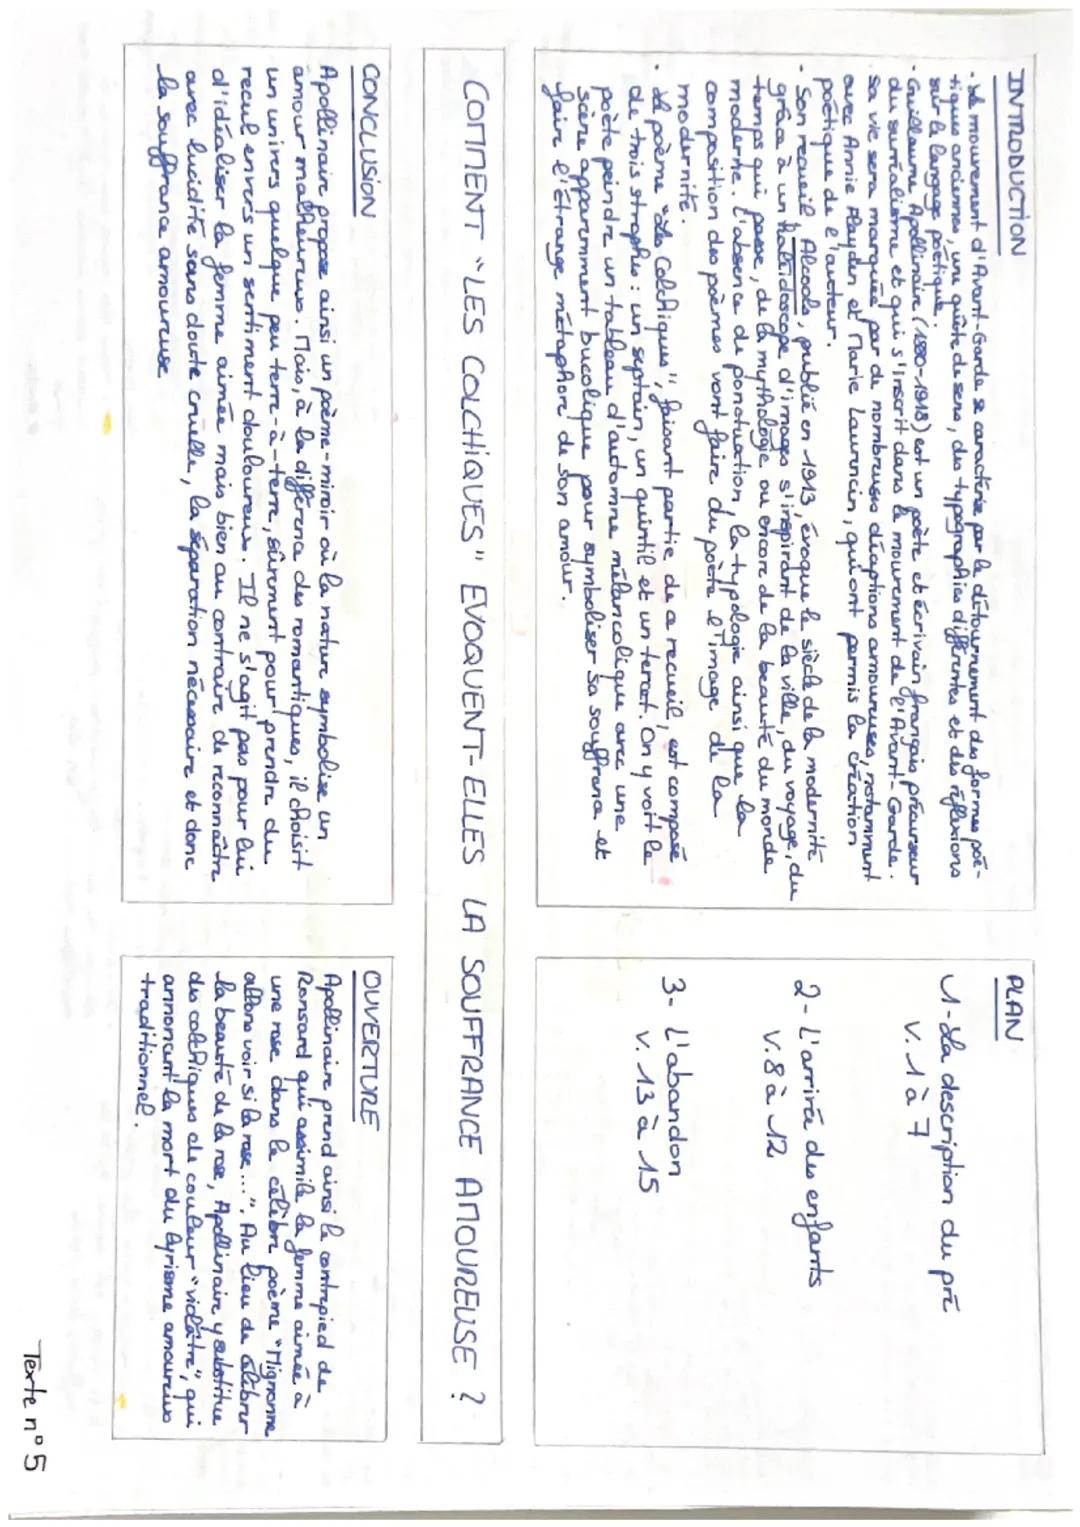 INTRODUCTION
• Le mouvement d'Avant-Garde se caractérise par le détournement des formes poé-
tiques anciennes, une quête de sens, des typographies différentes et des réflexions
sur le langage poétique.
• Guillaume Apollinaire (1880-1918) est un poète et écrivain français, précurseur
du surréalisme et qui s'inscrit dans le mouvement de l'Avant-Garde.
• sa vie sera marquée par de nombreuses déceptions amoureuses, notamment
avec Annie Playden et Marie Laurencin, qui ont permis la création
poétique de l'auteur.
• Son recueil, Alcools, publié en 1913, évoque le siècle de la modernité
grâce à un kaléidoscope d'images s'inspirant de la ville, du voyage, du
temps qui passe, de la mythologie ou encore de la beauté du monde
moderne. L'absence de ponctuation, la typologie ainsi que la
composition des poèmes vont faire du poète l'image de la
modernité.
• Le poème "Les Colchiques", faisant partie de ce recueil, est composé
de trois strophes : un septain, un quintil et un tercet. On y voit le
poète peindre un tableau d'automne mélancolique avec une
scène apparemment bucolique pour symboliser sa souffrance et
faire l'étrange métaphore de son amour.
PLAN
1- La description du pré
v. 1 à 7
2- L'arrivée des enfants
v. 8 à 12
3- L'abandon
v. 13 à 15
COMMENT "LES COLCHIQUES" EVOQUENT-ELLES LA SOUFFRANCE AMOUREUSE ?
CONCLUSION
Apollinaire propose ainsi un poème-miroir où la nature symbolise un
amour malheureux. Mais, à la différence des romantiques, il choisit
un univers quelque peu terre-à-terre, sûrement pour prendre du
recul envers un sentiment douloureux. Il ne s'agit pas pour lui
d'idéaliser la femme aimée mais bien au contraire de reconnaître
avec lucidité sans doute cruelle, la séparation nécessaire et donc
la souffrance amoureuse
OUVERTURE
Apollinaire prend ainsi le contrepied de
Ronsard qui assimile la femme aimée à
une rose dans le célèbre poème "Mignonne
allons voir si la rose...". Au lieu de célébrer
la beauté de la rose, Apollinaire y substitue
des colchiques de couleur "violâtre", qui
annoncent la mort du lyrisme amoureux
traditionnel.
Texte n°5